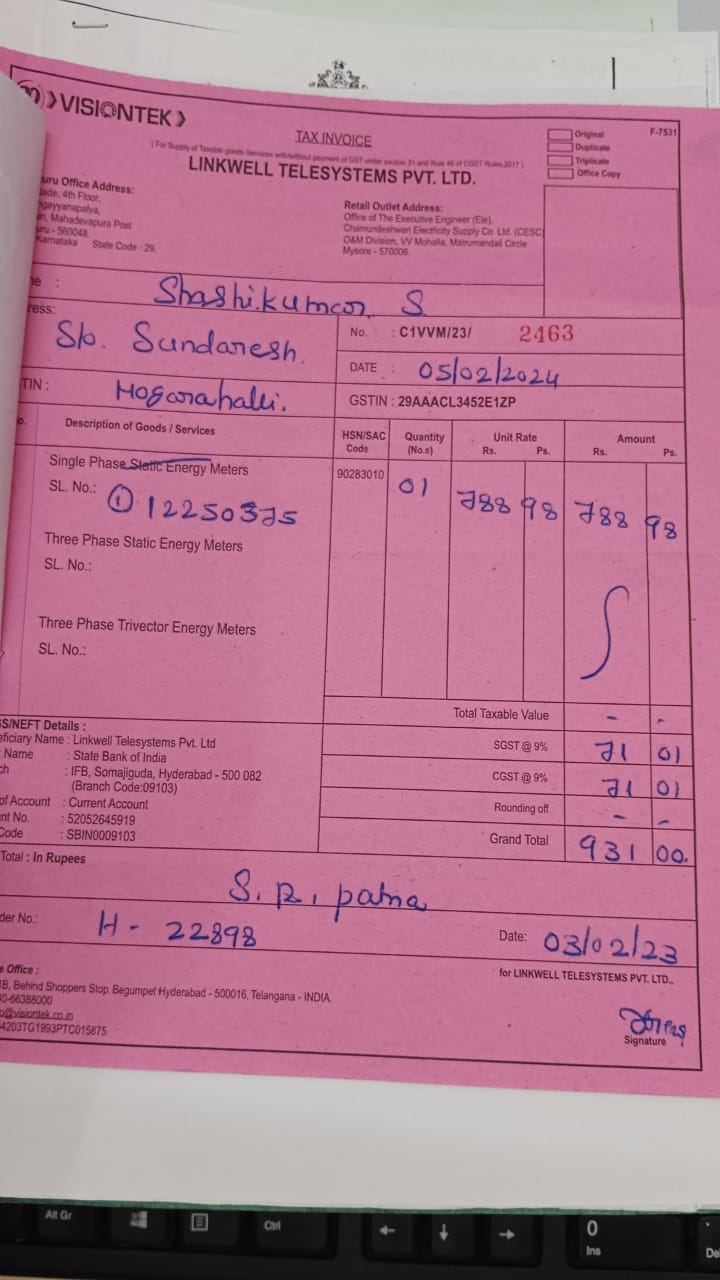 VISIONTEK
TAX INVOICE
Original
Duplicate
Triplicate
Office Copy
F-7531
(For Supply of Taxable goods /services with/without payment of GST under section 31 and Rule 46 of CGST Rules 2017)
LINKWELL TELESYSTEMS PVT. LTD.
uru Office Address:
ade, 4th Floor,
gayyanapalya,
en, Mahadevapura Post
uru - 560048
Karnataka State Code : 29
Retail Outlet Address:
Office of The Executive Engineer (Ele),
Chamundeshwari Electricity Supply Co. Ltd. (CESC)
O&M Division, VV Mohalla, Matrumandali Circle
Mysore - 570006
ne : Shashikumar. S
ress: S/o. Sundaresh.
No. : C1VVM/23/ 2463
DATE : 05/02/2024
TIN : Hogarahalli.
GSTIN : 29AAACL3452E1ZP
o. Description of Goods / Services HSN/SAC Code Quantity (No.s) Unit Rate Rs. Ps. Amount Rs. Ps.
Single Phase Static Energy Meters 90283010 01 788 98 788 98
SL. No.: ① 12250375
Three Phase Static Energy Meters
SL. No.:
Three Phase Trivector Energy Meters
SL. No.:
Total Taxable Value - -
SGST @ 9% 71 01
CGST @ 9% 71 01
Rounding off - -
Grand Total 931 00.
GS/NEFT Details :
eficiary Name : Linkwell Telesystems Pvt. Ltd
Name : State Bank of India
ch : IFB, Somajiguda, Hyderabad - 500 082
(Branch Code:09103)
of Account : Current Account
nt No. : 52052645919
Code : SBIN0009103
Total : In Rupees
S. R. patna
der No.: H - 22898
Date: 03/02/23
for LINKWELL TELESYSTEMS PVT. LTD.,
e Office :
B, Behind Shoppers Stop, Begumpet Hyderabad - 500016, Telangana - INDIA.
0-66388000
o@visiontek.co.in
4203TG1993PTC015875
Signature
Alt Gr
Ctrl
0
Ins
De